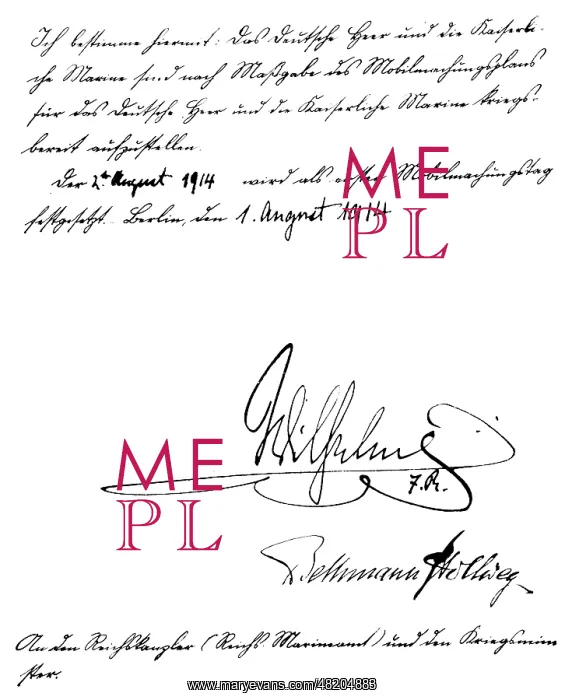 Ich bestimme hiermit: Das Deutsche Heer und die Kaiserli-
che Marine sind nach Maßgabe des Mobilmachungsplans
für das Deutsche Heer und die Kaiserliche Marine kriegs-
bereit aufzustellen.
Der 2te August 1914 wird als erster Mobilmachungstag
festgesetzt. Berlin, den 1. August 1914
ME
PL
Wilhelm
I.R.
ME
PL
Bethmann Hollweg
An den Reichskanzler (Reichs-Marineamt) und den Kriegsmini
ster.
www.maryevans.com/48204883